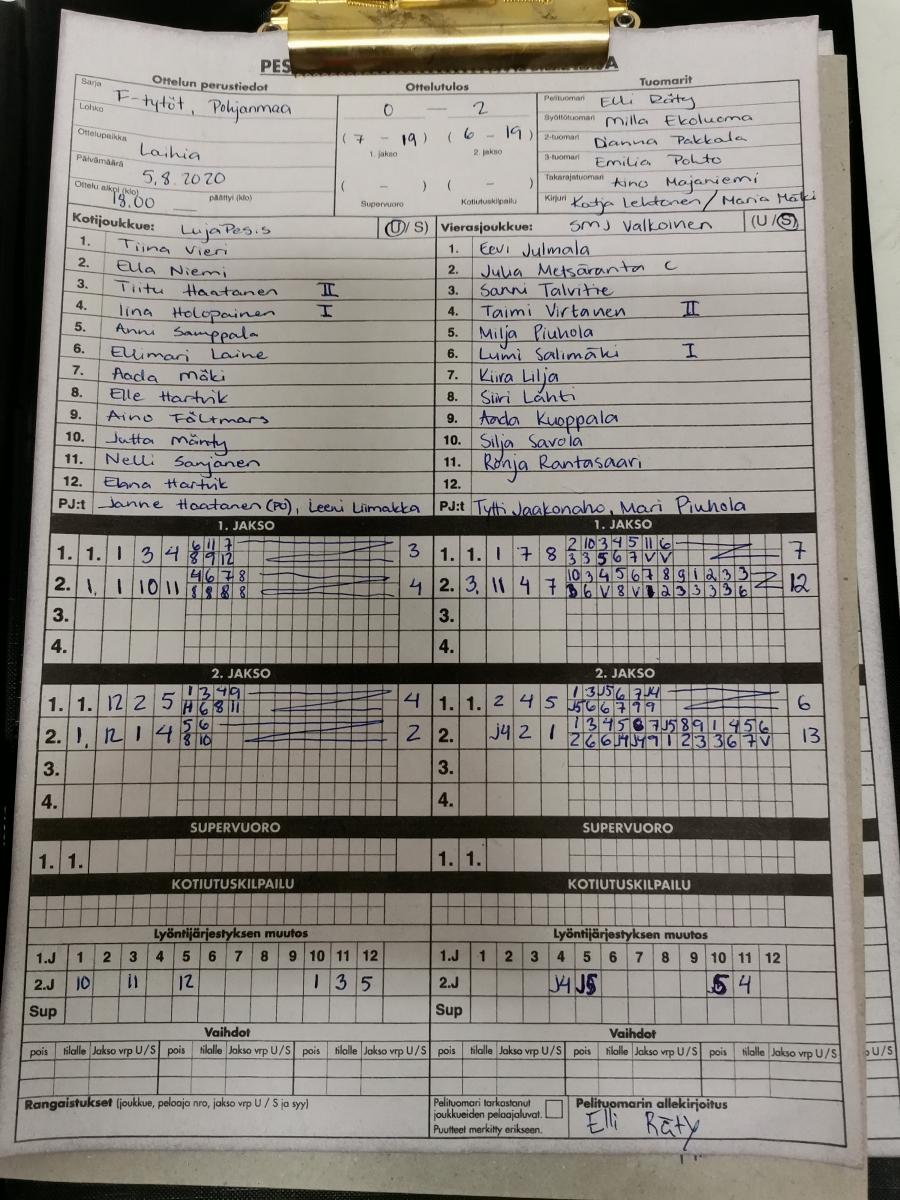 PES
Ottelun perustiedot
Sarja F-tytöt, Pohjanmaa
Lohko
Ottelupaikka Laihia
Päivämäärä 5.8.2020
Ottelu alkoi (klo) 18.00 päättyi (klo)
Ottelutulos
0 — 2
(7 - 19) (6 - 19)
1. jakso 2. jakso
( - ) ( - )
Supervuoro Kotiutuskilpailu
Tuomarit
Pelituomari Elli Räty
Syöttötuomari Milla Ekoluoma
2-tuomari Dianna Pakkala
3-tuomari Emilia Pohto
Takarajatuomari Aino Majaniemi
Kirjuri Katja Lehtonen / Maria Mäki
Kotijoukkue: LujaPesis (U/S)
1. Tiina Vieri
2. Ella Niemi
3. Tiitu Haatanen II
4. Iina Holopainen I
5. Anni Samppala
6. Ellimari Laine
7. Aada Mäki
8. Elle Hartvik
9. Aino Fältmars
10. Jutta Mänty
11. Nelli Sanjanen
12. Elana Hartvik
PJ:t Janne Haatanen (PJ), Leeni Liimakka
Vierasjoukkue: SMJ Valkoinen (U/S)
1. Eevi Julmala
2. Julia Metsäranta C
3. Sanni Talvitie
4. Taimi Virtanen II
5. Milja Piuhola
6. Lumi Salimäki I
7. Kiira Lilja
8. Siiri Lahti
9. Aada Kuoppala
10. Silja Savola
11. Ronja Rantasaari
12.
PJ:t Tytti Jaakonaho, Mari Piuhola
1. JAKSO
1. 1. 1 3 4 6 11 7 3
8 9 12
2. 1. 1 10 11 4 6 7 8 4
8 8 8 8
3.
4.
1. JAKSO
1. 1. 1 7 8 2 10 3 4 5 11 6 7
3 3 5 6 7 V V
2. 3. 11 4 7 10 3 4 5 6 7 8 9 1 2 3 3 12
6 V 8 V 2 3 3 3 3 6
3.
4.
2. JAKSO
1. 1. 12 2 5 1 3 4 9 4
11 6 8 11
2. 1. 12 1 4 5 6 2
8 10
3.
4.
2. JAKSO
1. 1. 2 4 5 1 3 J5 6 7 J4 6
J5 6 6 7 9 9
2. J4 2 1 1 3 4 5 6 7 J5 8 9 1 4 5 6 13
2 6 6 J4 J4 9 1 2 3 3 6 7 V
3.
4.
SUPERVUORO
1. 1.
SUPERVUORO
1. 1.
KOTIUTUSKILPAILU
KOTIUTUSKILPAILU
Lyöntijärjestyksen muutos
1.J 1 2 3 4 5 6 7 8 9 10 11 12
2.J 10 11 12 1 3 5
Sup
Lyöntijärjestyksen muutos
1.J 1 2 3 4 5 6 7 8 9 10 11 12
2.J J4 J5 5 4
Sup
Vaihdot
pois tilalle Jakso vrp U/S pois tilalle Jakso vrp U/S pois tilalle Jakso vrp U/S
Vaihdot
pois tilalle Jakso vrp U/S pois tilalle Jakso vrp U/S pois tilalle Jakso vrp U/S
Rangaistukset (joukkue, pelaaja nro, jakso vrp U / S ja syy)
Pelituomari tarkastanut
joukkueiden pelaajaluvat.
Puutteet merkitty erikseen.
Pelituomarin allekirjoitus
Elli Räty